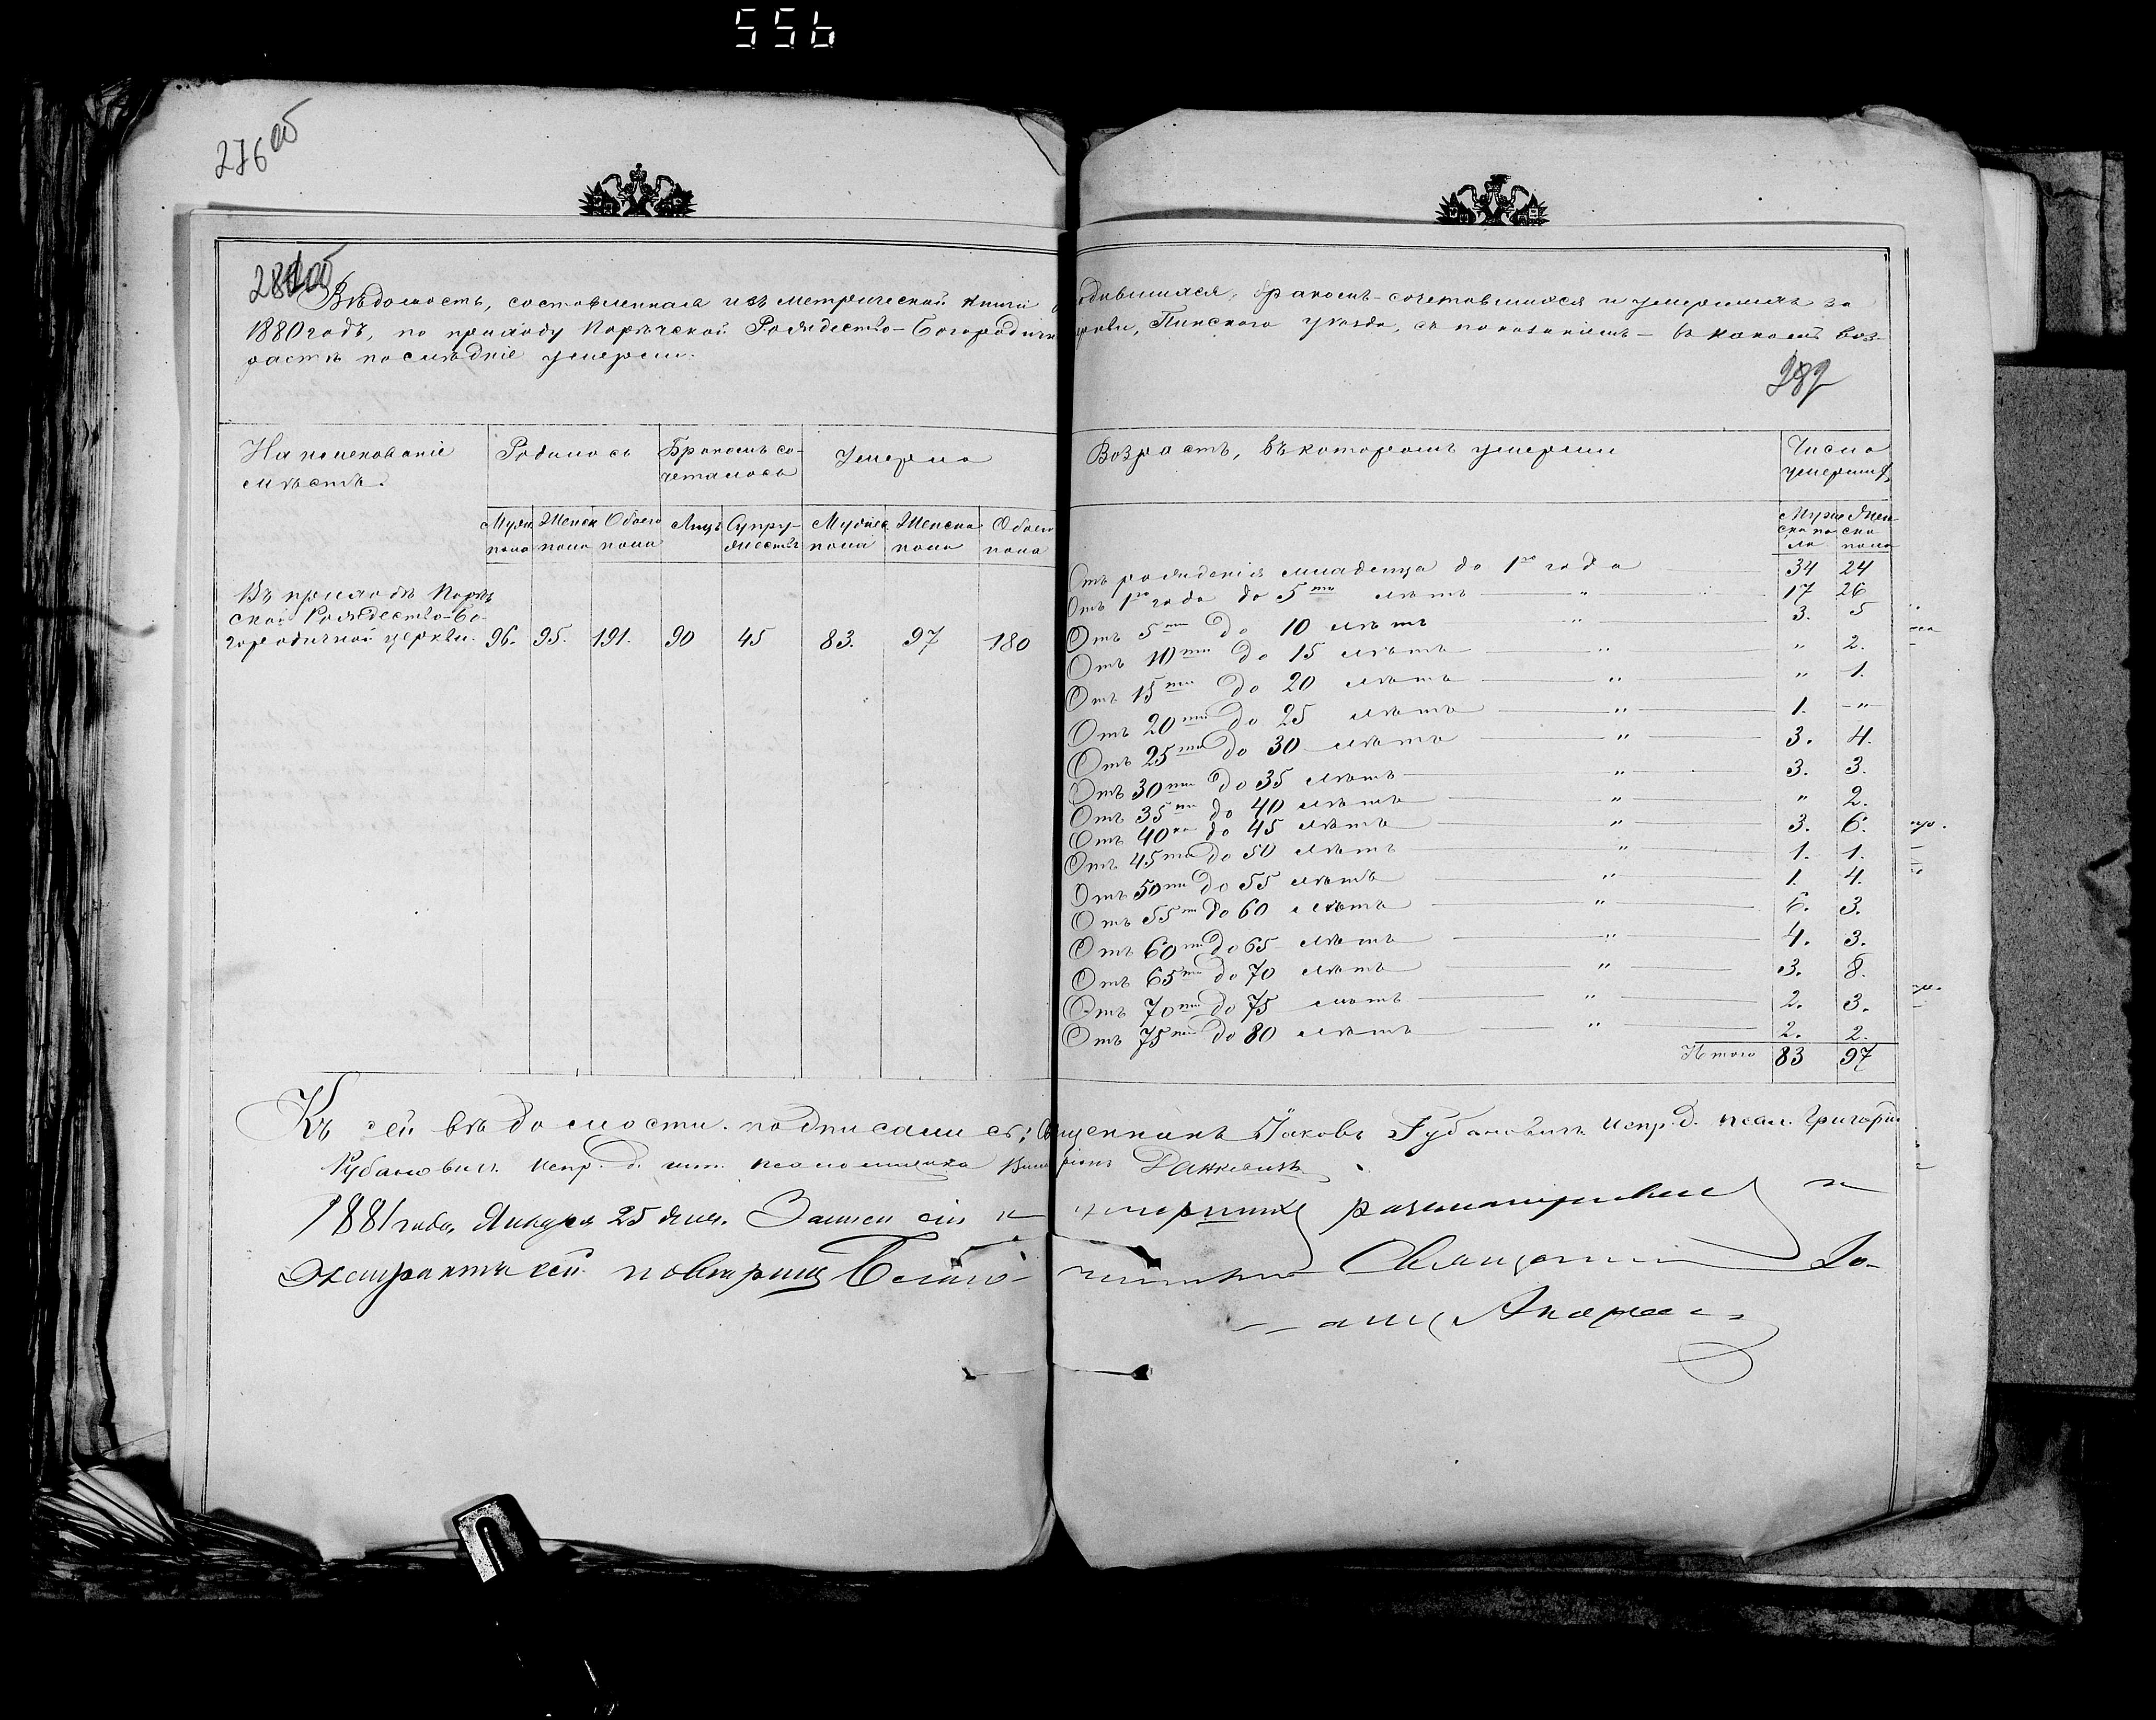 556
276 об
282 об
Вѣдомость, составленная изъ метрической книги родившихся, бракомъ-сочетавшихся и умершихъ за
1880 годъ, по приходу Порѣчской Рождество-Богородичн церкви, Пинского уѣзда, съ показаніемъ – въ какомъ воз-
растѣ послѣдніе умерли.
282
Наименованіе мѣстъ.
Родилось
Бракомъ сочеталось
Умерло
Возрастъ, въ которомъ умерли
Число умершихъ
Мужск пола
Женск пола
Обоего пола
Лицъ
Супружествъ
Мужеск пола
Женска пола
Обоего пола
Мужеска пола
Женска пола
Въ приходѣ Порѣч
ской Рождество-Бо-
городичной церкви. 96. 95. 191. 90 45 83. 97 180
Отъ рожденія младенца до 1го года 34 24
Отъ 1го года до 5ти лѣтъ " 17 26
Отъ 5ти до 10 лѣтъ " 3. 5
Отъ 10ти до 15 лѣтъ " " 2.
Отъ 15ти до 20 лѣтъ " " 1.
Отъ 20ти до 25 лѣтъ " 1. "
Отъ 25ти до 30 лѣтъ " 3. 4.
Отъ 30ти до 35 лѣтъ " 3. 3.
Отъ 35ти до 40 лѣтъ " " 2.
Отъ 40ка до 45 лѣтъ " 3. 6.
Отъ 45ти до 50 лѣтъ " 1. 1.
Отъ 50ти до 55 лѣтъ " 1. 4.
Отъ 55ти до 60 лѣтъ " 6. 3.
Отъ 60ти до 65 лѣтъ " 4. 3.
Отъ 65ти до 70 лѣтъ " 3. 8.
Отъ 70ти до 75 лѣтъ " 2. 3.
Отъ 75ти до 80 лѣтъ " 2. 2.
Итого 83 97
Къ сей вѣдомости подписались: Священникъ Іаковъ Рубановичъ Испр. д. псал. Григорій
Рубановичъ Испр. д. псаломщика Данкевичъ
1881 года, Января 25 дня. Записи сіи умершихъ разсматривалъ и
Экстрактъ сей повѣрилъ Благочинный Священникъ Іо-
аннъ